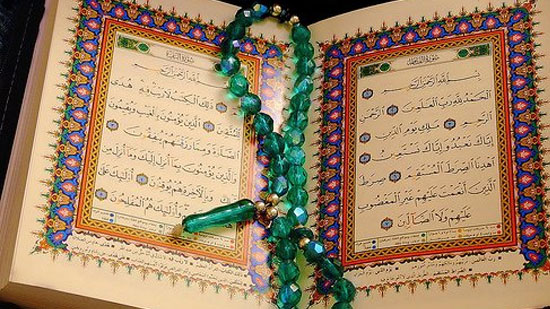 سورة الفاتحة
بِسْمِ اللَّهِ الرَّحْمَٰنِ الرَّحِيمِ
الْحَمْدُ لِلَّهِ رَبِّ الْعَٰلَمِينَ الرَّحْمَٰنِ
الرَّحِيمِ مَٰلِكِ يَوْمِ الدِّينِ
إِيَّاكَ نَعْبُدُ وَإِيَّاكَ نَسْتَعِينُ
اهْدِنَا الصِّرَٰطَ الْمُسْتَقِيمَ صِرَٰطَ
الَّذِينَ أَنْعَمْتَ عَلَيْهِمْ غَيْرِ الْمَغْضُوبِ
عَلَيْهِمْ وَلَا الضَّالِّينَ
سورة البقرة
بِسْمِ اللَّهِ الرَّحْمَٰنِ الرَّحِيمِ
ذَٰلِكَ الْكِتَٰبُ لَا رَيْبَ فِيهِ هُدًى
لِلْمُتَّقِينَ الَّذِينَ يُؤْمِنُونَ بِالْغَيْبِ وَيُقِيمُونَ
الصَّلَوٰةَ وَمِمَّا رَزَقْنَٰهُمْ يُنْفِقُونَ
وَالَّذِينَ يُؤْمِنُونَ بِمَا أُنْزِلَ إِلَيْكَ وَمَا أُنْزِلَ مِنْ
وَبِالْآخِرَةِ هُمْ يُوقِنُونَ أُولَٰئِكَ عَلَىٰ
وَأُولَٰئِكَ هُمُ الْمُفْلِحُونَ